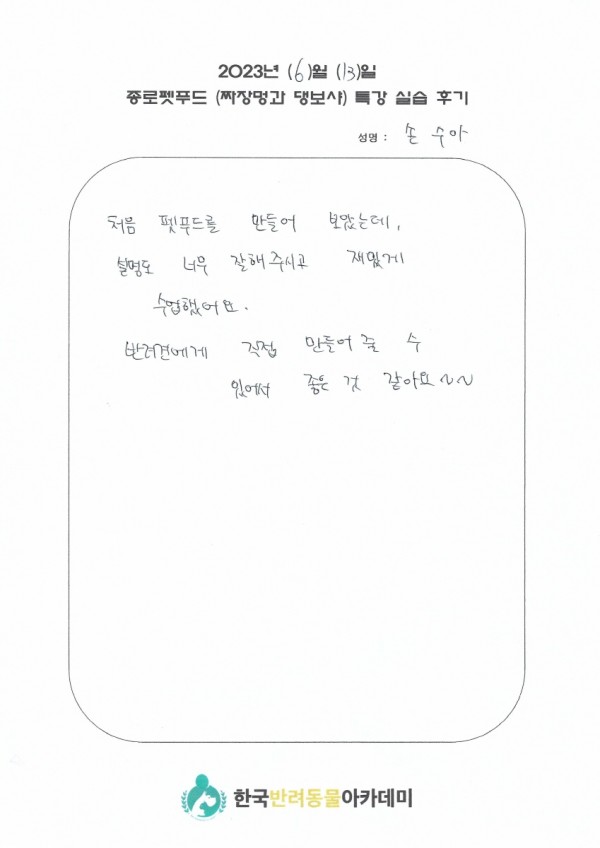 2023년 (6)월 (13)일
종로펫푸드 (짜장멍과 댕보샤) 특강 실습 후기
성명 : 손 수아
처음 펫푸드를 만들어 보았는데,
설명도 너무 잘해주시고 재밌게
수업했어요.
반려견에게 직접 만들어 줄 수
있어서 좋은 것 같아요~~
한국반려동물아카데미